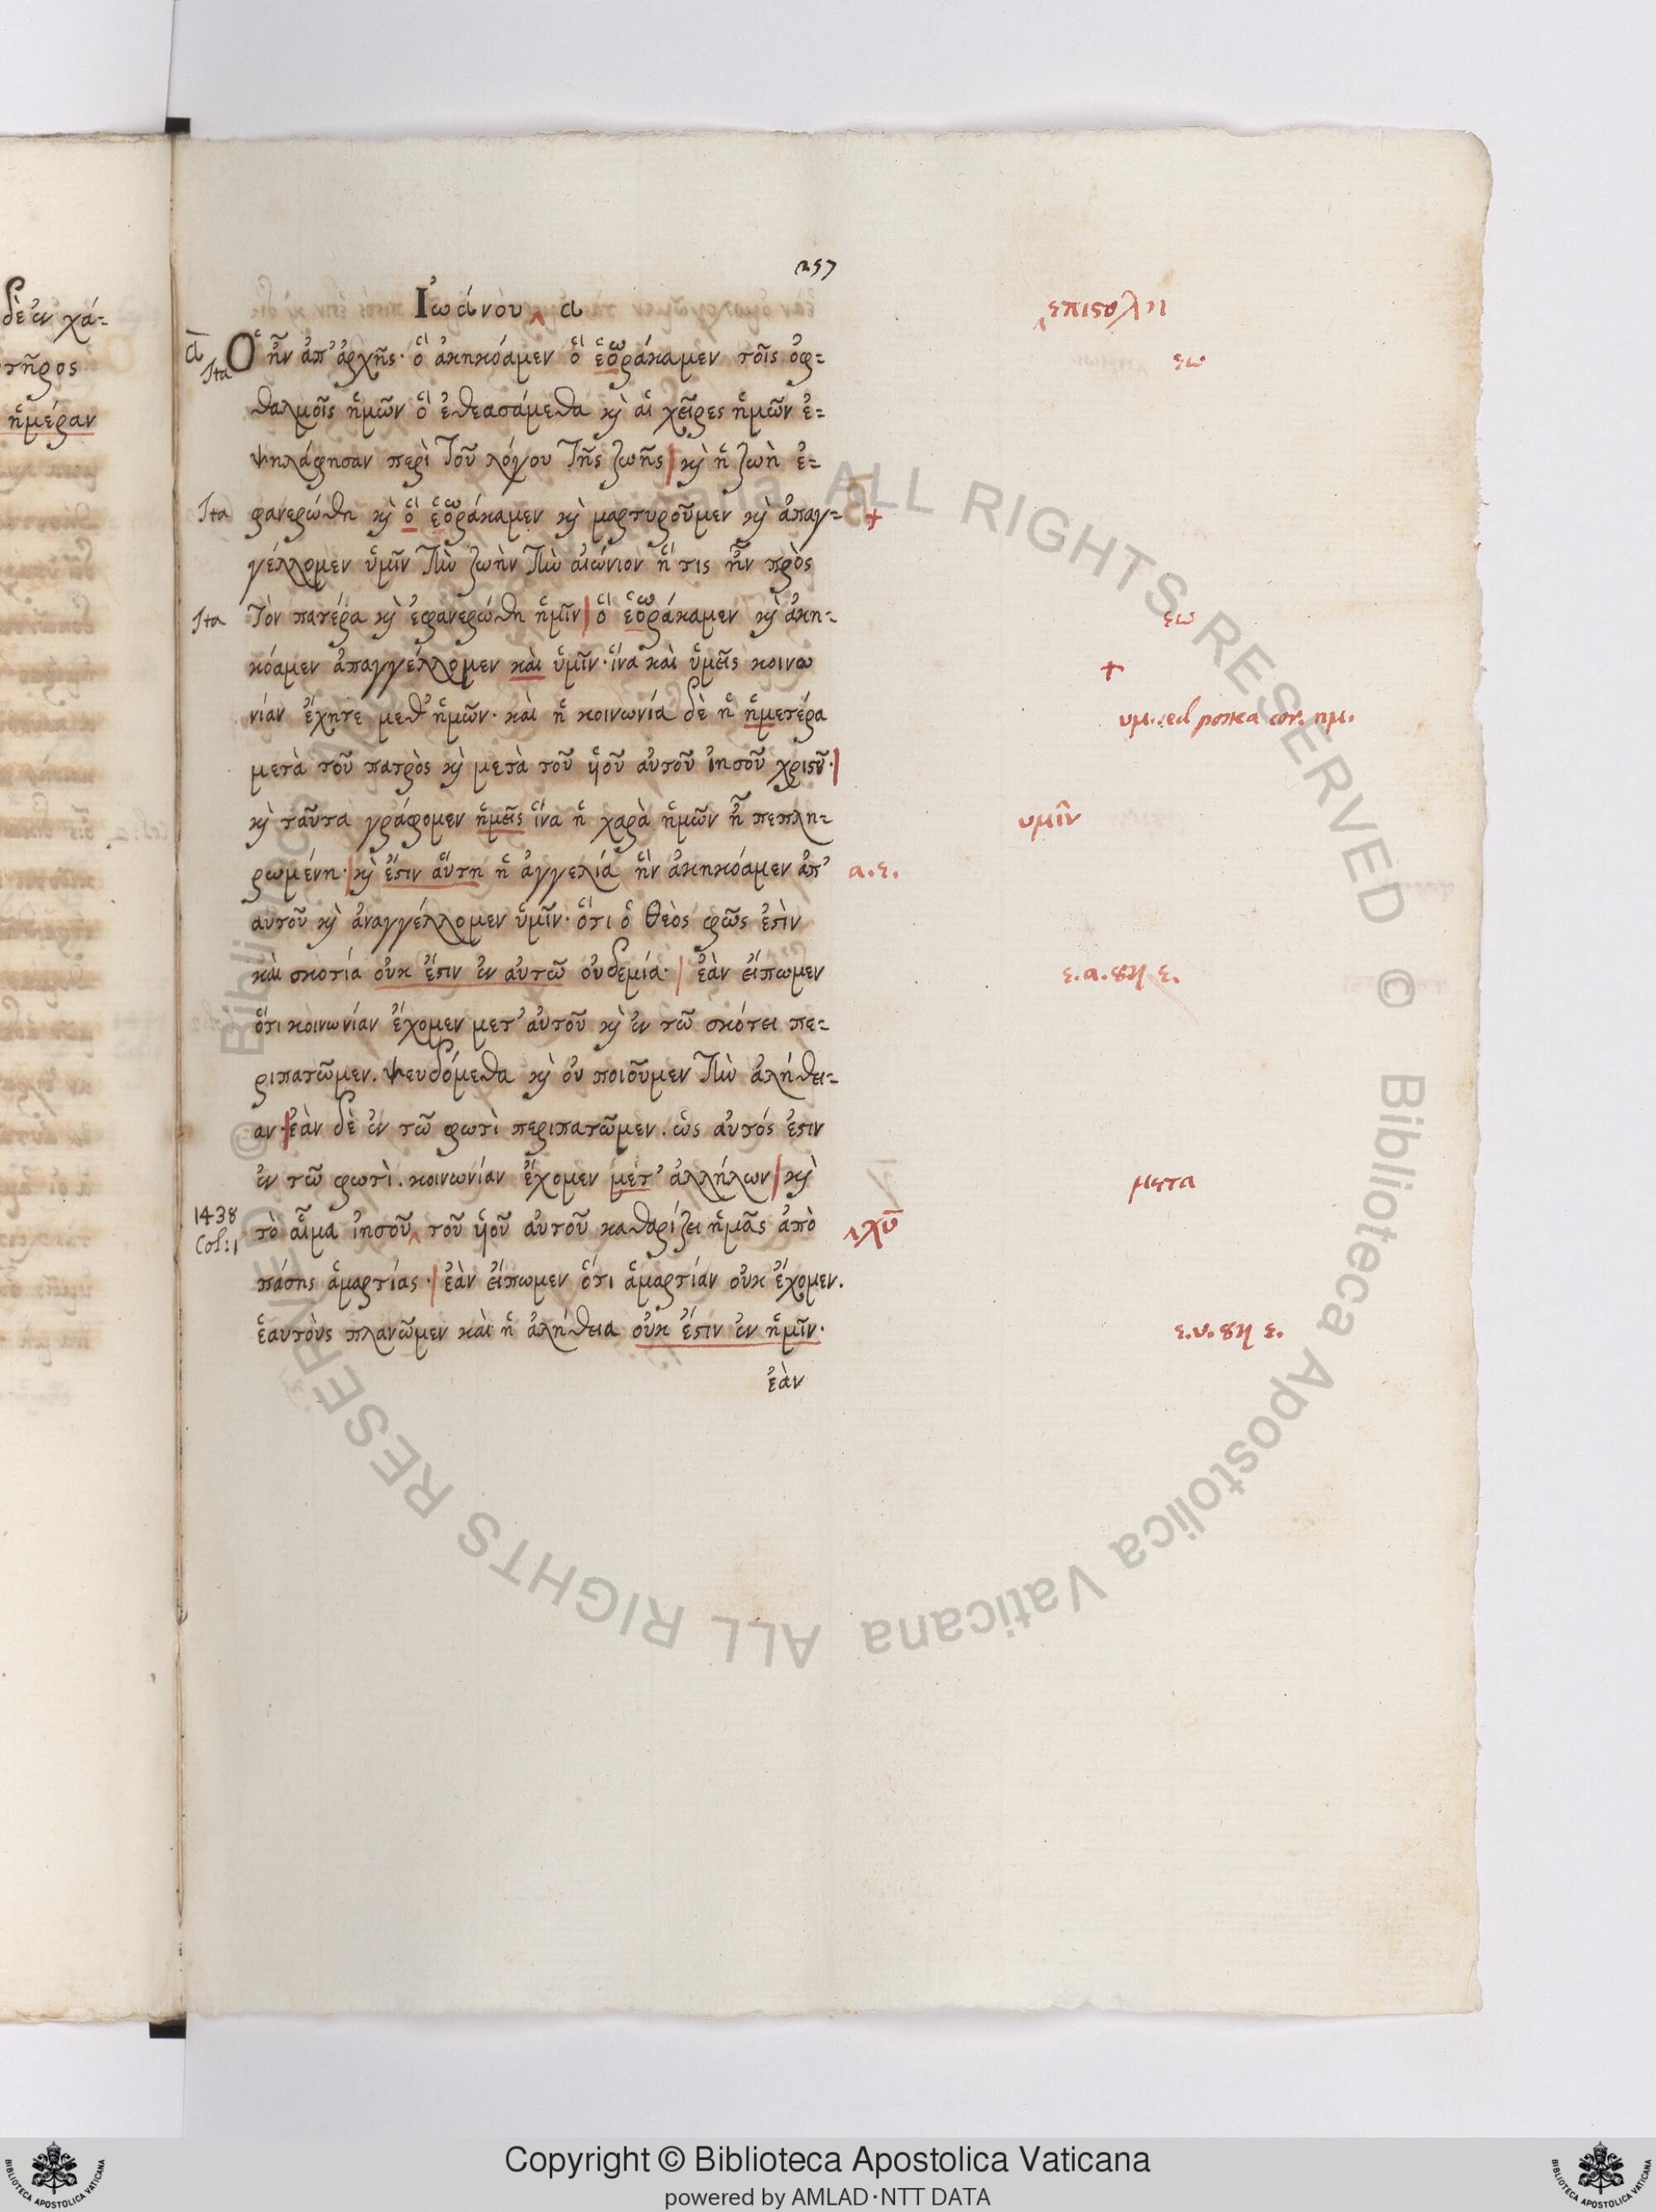 257
δὲ ἐν χά-
τῆρος
ἡμέραν
Ἰωάνου ‸ α
‸επιστολη
α
Ita
Ὃ ἦν ἀπ' ἀρχῆς· ὃ ἀκηκόαμεν ὃ ἑοράκαμεν τοῖς ὀφ-
ω
εω
θαλμοῖς ἡμῶν ὃ ἐθεασάμεθα κὶ αἱ χεῖρες ἡμῶν ἐ-
ψηλάφησαν περὶ τοῦ λόγου τῆς ζωῆς| κὶ ἡ ζωὴ ἐ-
Ita φανερώθη κὶ ὃ ἑοράκαμεν κὶ μαρτυροῦμεν κὶ ἀπαγ- +
ω
γέλλομεν ὑμῖν τὴν ζωὴν τὴν αἰώνιον ἥ τις ἦν πρὸς
Ita τὸν πατέρα κὶ ἐφανερώθη ἡμῖν| ὃ ἑοράκαμεν κὶ ἀκη-
ω
εω
κόαμεν ἀπαγγέλλομεν καὶ ὑμῖν· ἵνα καὶ ὑμεῖς κοινω
+
νίαν ἔχητε μεθ' ἡμῶν· καὶ ἡ κοινωνία δὲ ἡ ἡμετέρα
υμ. sed postea cor. ημ.
μετὰ τοῦ πατρὸς κὶ μετὰ τοῦ ὑιοῦ αὐτοῦ ἰησοῦ χριστοῦ·|
κὶ ταῦτα γράφομεν ἡμεῖς ἵνα ἡ χαρὰ ἡμῶν ἦ πεπλη-
υμῖν
ρωμένη·| κὶ ἔστιν ἅυτη ἡ ἀγγελία ἣν ἀκηκόαμεν ἀπ' α.ε.
αυτοῦ κὶ ἀναγγέλλομεν ὑμῖν· ὅτι ὁ θεὸς φῶς ἐστὶν
καὶ σκοτία οὐκ ἔστιν ἐν αὐτῶ οὐδεμία·| ἐὰν εἴπωμεν
ε.α.ουκ ε.
ὅτι κοινωνίαν ἔχομεν μετ' αὐτοῦ κὶ ἐν τῶ σκότει πε-
ριπατῶμεν. ψευδόμεθα κὶ οὐ ποιοῦμεν τὴν ἀλήθει-
αν·|ἐὰν δὲ ἐν τῶ φωτὶ περιπατῶμεν. ὡς αὐτός ἐστιν
ἐν τῶ φωτὶ. κοινωνίαν ἔχομεν μετ' ἀλλήλων| κὶ
μετα
1438
Col: 1
τὸ αἷμα ἰησοῦ ‸ τοῦ ὑιοῦ αὐτοῦ καθαρίζει ἡμᾶς ἀπὸ ‸χυ
πάσης ἁμαρτίας·| ἐὰν εἴπωμεν ὅτι ἁμαρτίαν οὐκ ἔχομεν.
ἑαυτοὺς πλανῶμεν καὶ ἡ ἀλήθεια οὐκ ἔστιν ἐν ἡμῖν·
ε.υ.ουκ ε.
ἐὰν
© Biblioteca Apostolica Vaticana ALL RIGHTS RESERVED © Biblioteca Apostolica Vaticana ALL RIGHTS RESERVED
Copyright © Biblioteca Apostolica Vaticana
powered by AMLAD·NTT DATA
BIBLIOTECA APOSTOLICA VATICANA
BIBLIOTECA APOSTOLICA VATICANA